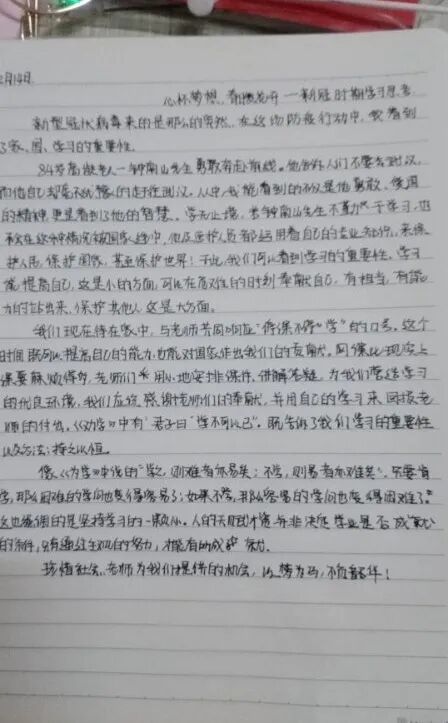 2月14日.
心怀梦想,静待花开——新冠时期学习思考
新型冠状病毒来的是那么的突然,在这场防疫行动中,我看到
了家、国、学习的重要性。
84岁高龄老人—钟南山先生勇敢奔赴前线。他告诉人们不要去武汉,
而他自己却毫不犹豫的走往武汉。从中,我能看到的不仅是他勇敢、爱国
的精神,更是看到了他的智慧。学无止境,若钟南山先生不勤于学习,也
不会在这种情况被国家选中,他及医护人员都运用着自己的专业知识,来保
护人民,保护国家,甚至保护世界!于此,我们可以看到学习的重要性,学习
能提高自己,这是小的方面,可以在危难的时刻奉献自己,有担当,有能
力的站出来,保护其他人这是大方面。
我们现在待在家中,与老师共同响应“停课不停“学”的口号。这个
时间既可以提高自己的能力,也能对国家作出我们的贡献。网课比现实上
课要麻烦得多,老师们用心地安排课件,讲解答疑,为我们营造学习
的优良环境,我们应该感谢老师们的奉献,并用自己的学习来回报老
师的付出。《劝学》中有“君子曰“学不可以已”。既告诉了我们学习的重要性
以及方法:持之以恒。
像《为学》中说的“学之,则难者亦易矣;不学,则易者亦难矣”,只要肯
学,那么困难的学问也变得容易了;如果不学,那么容易的学问也变得困难了。
这也强调的是坚持学习的一颗心。人的天赋才能与非决定学业是否成就
的条件,只有通过主观的努力,才能有所成就。
珍惜社会、老师为我们提供的机会,以梦为马,不负韶华!